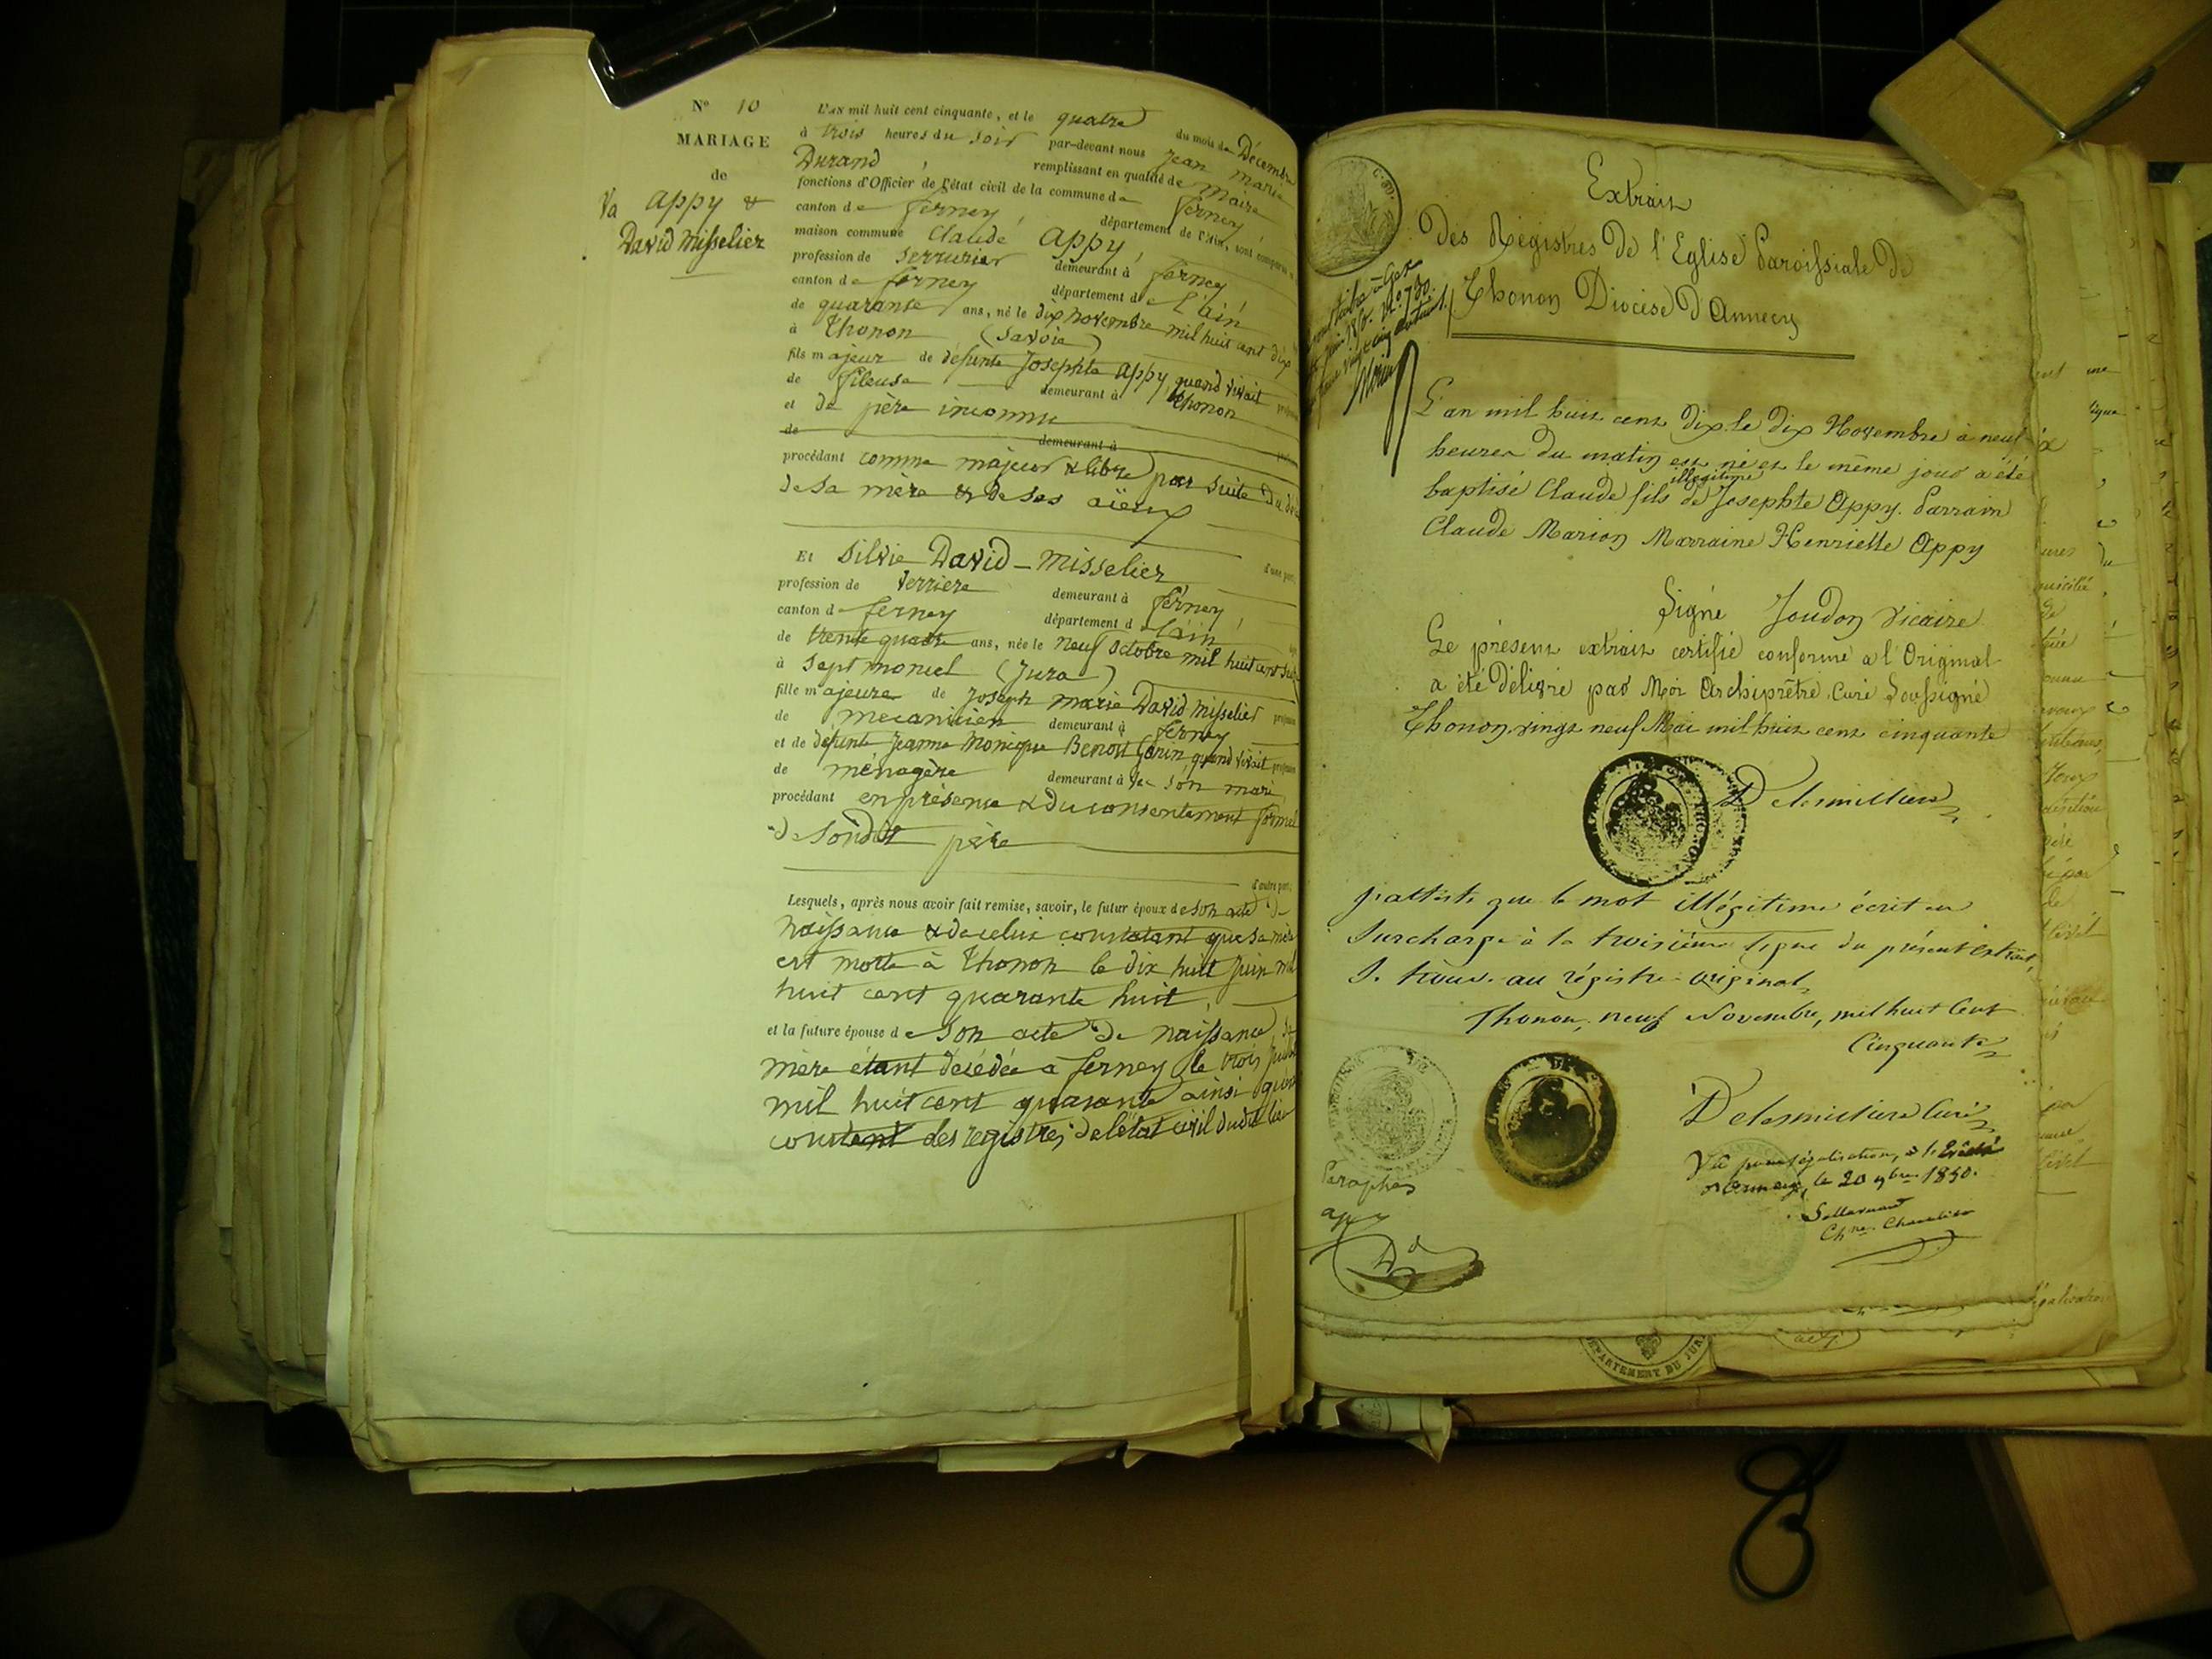 N° 10
MARIAGE
de
Va Appy &
David Misselier
L'AN mil huit cent cinquante, et le quatre du mois de Décembre
à trois heures du soir par-devant nous Jean Marie
Durand remplissant en qualité de Maire
fonctions d'Officier de l'état civil de la commune de Ferney
canton de Ferney, département de l'Ain, sont comparus
maison commune Claude Appy,
profession de Serrurier demeurant à Ferney,
canton de Ferney département de l'ain
de quarante ans, né le dix novembre mil huit cent dix
à Thonon (Savoie)
fils majeur de défunte Josephte Appy, quand vivait
de fileuse demeurant à Thonon
et de père inconnu
de demeurant à
procédant comme majeur & libre par suite du
de sa mère & de ses aïeux
d'une part,
Et Silvie David-Misselier
profession de demeurant à Ferney,
canton de Ferney département d l'ain,
de trente quatre ans, née le neuf octobre mil huit cent
à Septmoncel (Jura)
fille majeure de Joseph Marie David Misselier
de mécanicien demeurant à Ferney
et de défunte Jeanne Monique Benoit Gonin, quand vivait
de ménagère demeurant à son mari
procédant en présence & du consentement formel
de sondit père
d'autre part;
Lesquels, après nous avoir fait remise, savoir, le futur époux de son acte de
naissance & de celui constatant que sa mère
est morte à Thonon le dix huit juin mil
huit cent quarante huit,
et la future épouse de son acte de naissance, sa
mère étant décédée à Ferney le trois
mil huit cent quarante ainsi
constant des registres de l'état civil dudit lieu
Extrait
Des Régistres De l'Eglise Paroissiale De
Thonon Diocèse D'Annecy
L'an mil huit cent Dix le dix Novembre à neuf
heures du matin est né et le même jour a été
illégitime
baptisé Claude fils de Josephte Appy. Parrain
Claude Marion Marraine Henriette Appy
Signé Joudon Vicaire
Le présent extrait certifié conforme à l'Original
a été Délivré par Moi Archiprêtre Curé Soussigné
Thonon vingt neuf Mai mil huit cent cinquante
Delesmillieres
J'atteste que le mot illégitime écrit en
surcharge à la troisième ligne du présent extrait,
se trouve au régistre original,
Thonon, neuf Novembre, mil huit Cent
Cinquante
Delesmillieres Curé
Vu pour légalisation, à l'Evêché
d'Annecy, le 20 9bre 1850.
Chne Chancelier
Paraphés
appy
Dd
DEPARTEMENT DU JURA